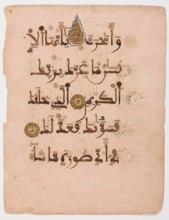 وأخرت يأيها الا
نسن ما غرك بربك
الكريم الذي خلقك
فسويك فعدلك
في أي صورة ما شا